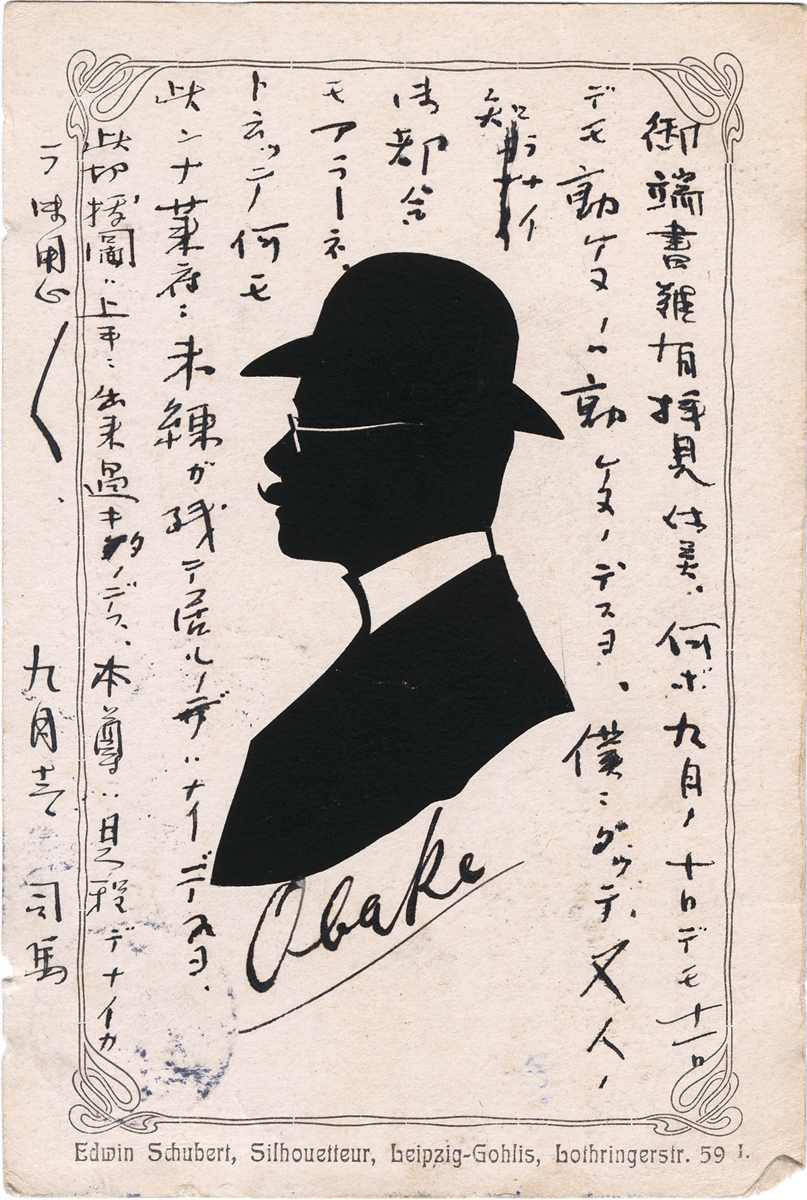 御端書難有拝見仕候、何ボ九月ノ十日デモ十一日
デモ動ケヌノハ動ケヌノデスヨ、僕ニダッテ、又人ノ
知ラナイ
御都合
モアラーネ、
トネッテ何モ
此ンナ莱府ニ未練ガ残テ居ルノデハナイデースヨ、
此切抜圖ハ上手ニ出来過キタノデス、本尊ハ是程デナイカ
ラ御用心〱.
九月十一 司馬
Obake
Edwin Schubert, Silhouetteur, Leipzig-Gohlis, Lothringerstr. 59 I.